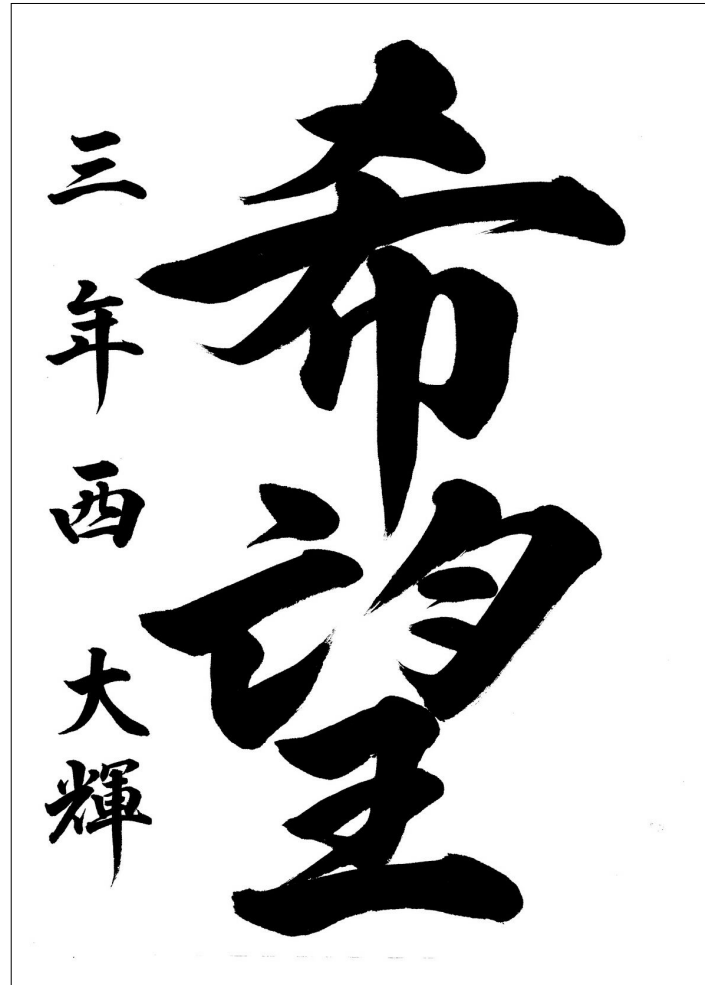 希望
三年西大輝